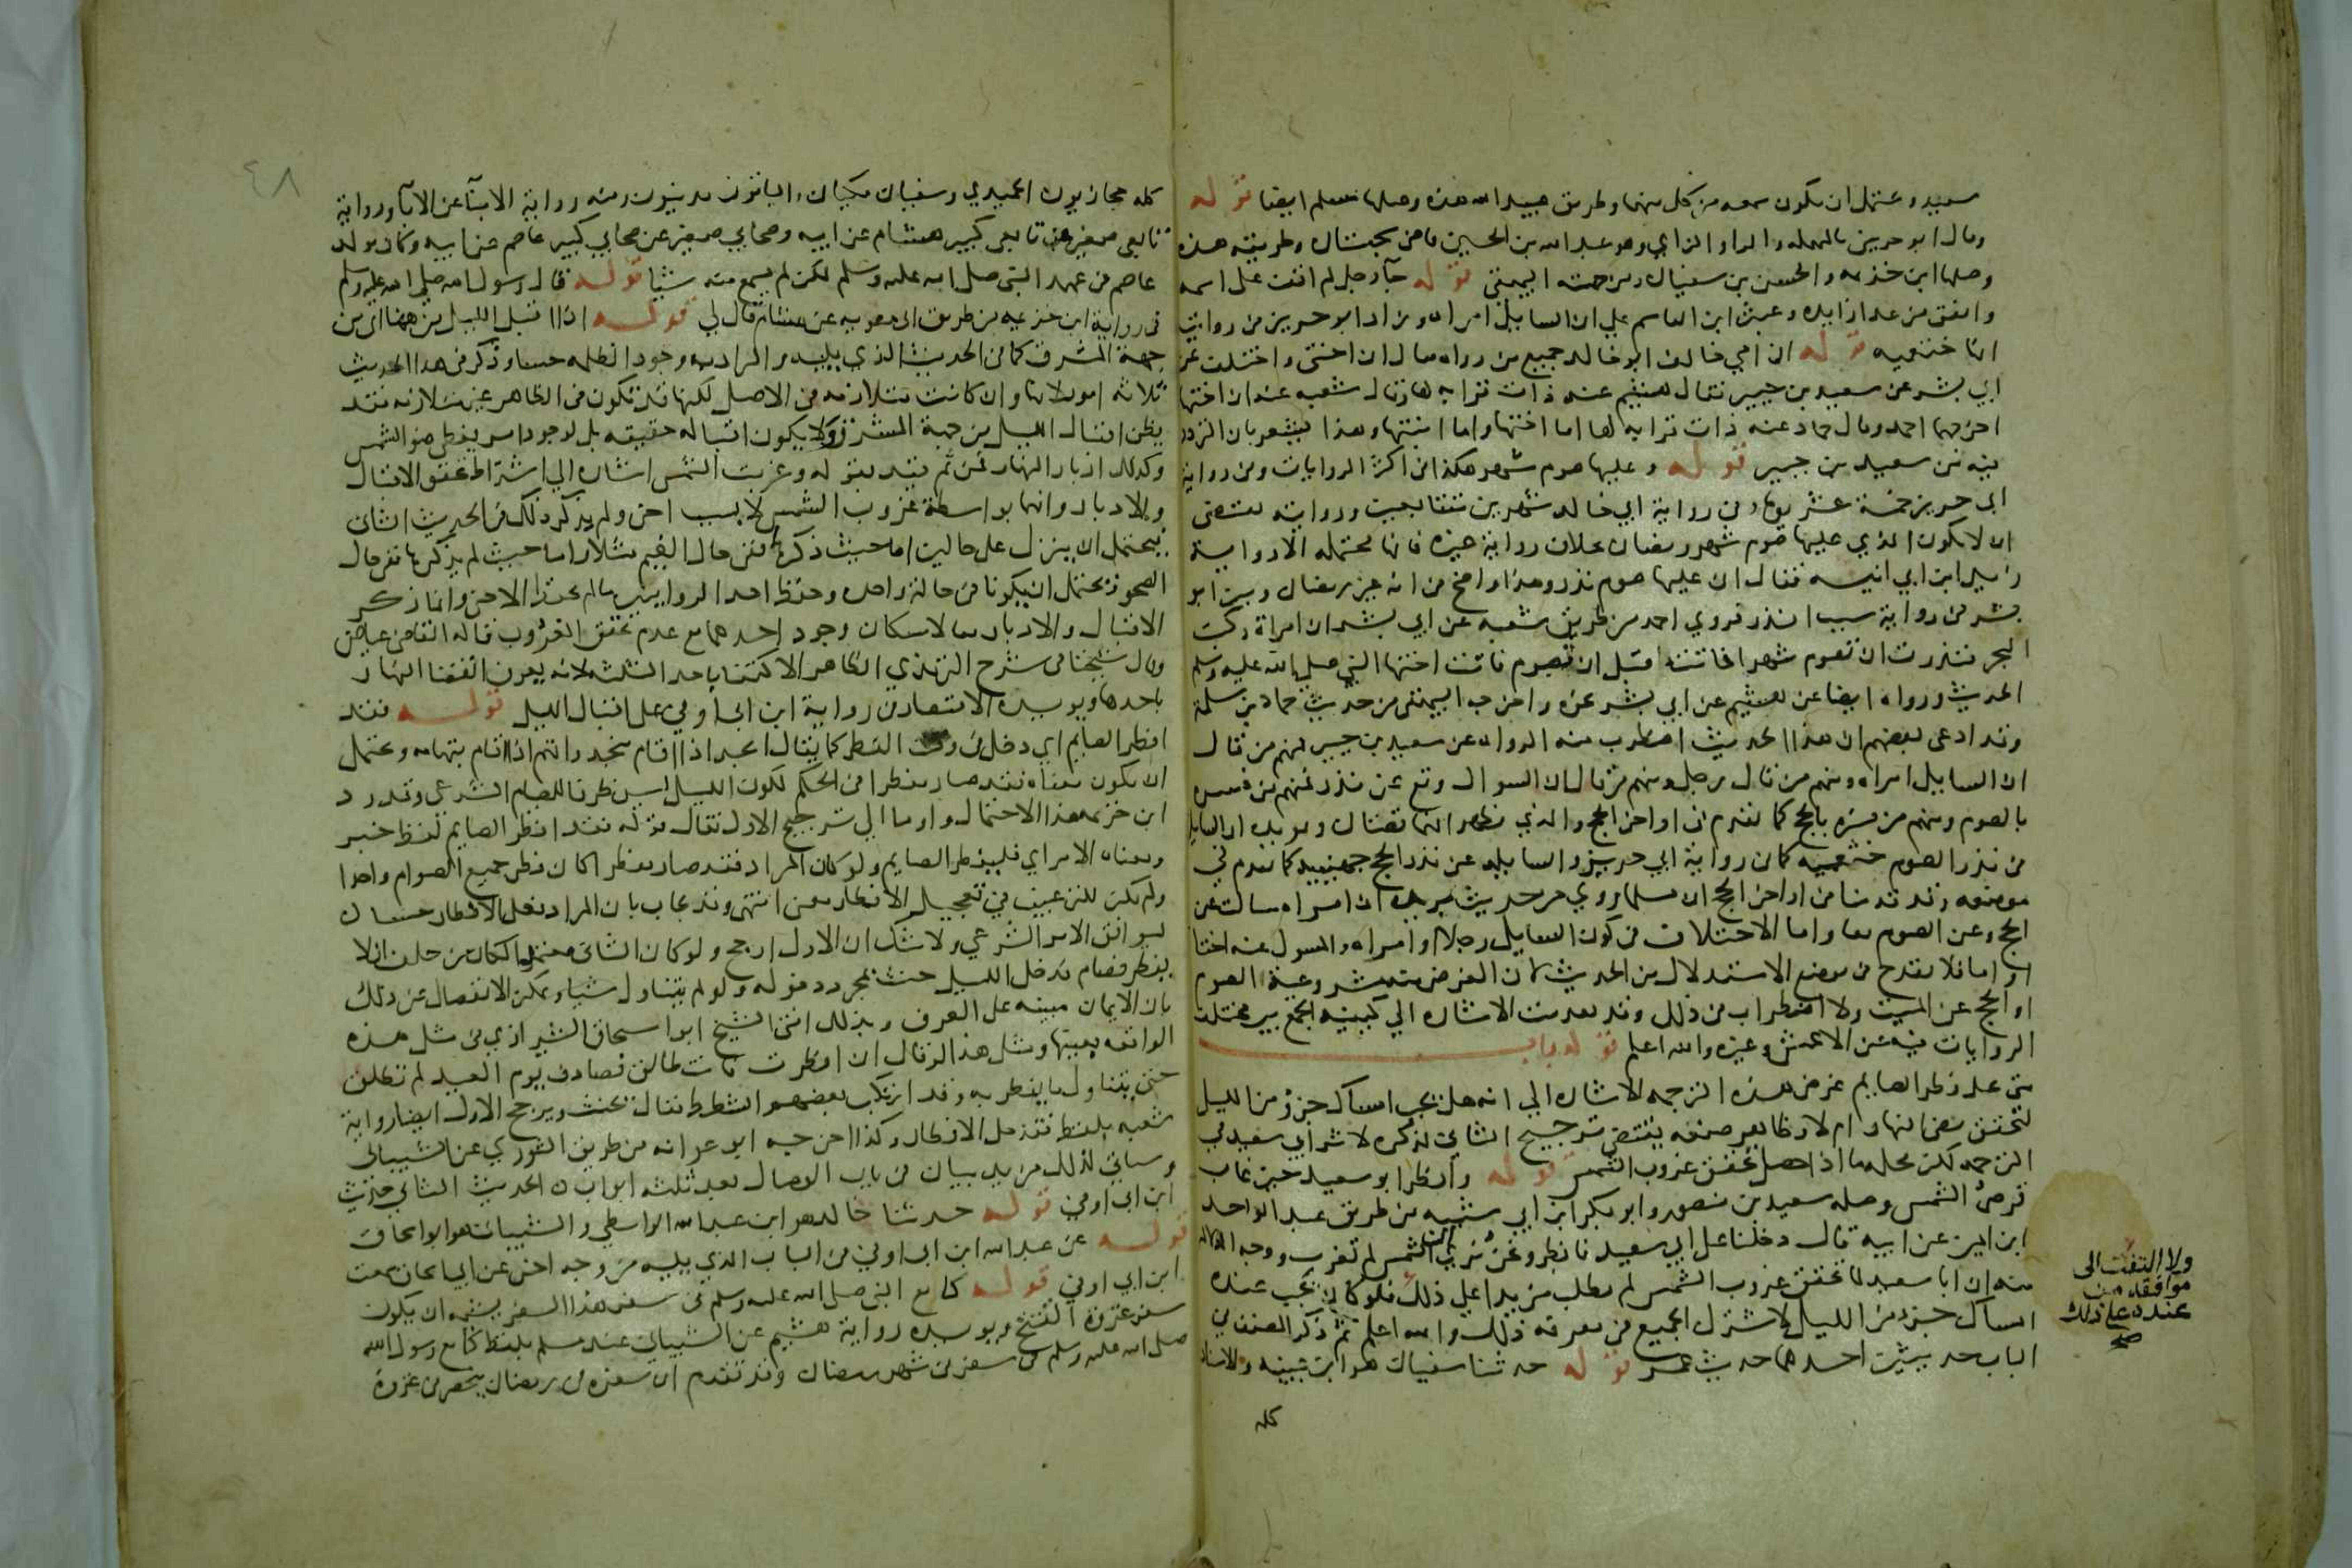 سعيد ويحتمل ان يكون سمعه من كل منهما وطريق عبيد الله هذه وصلها مسلم ايضا قوله
وقال ابو حريز بالمهمله والراء والزاي وهو عبد الله بن الحسين قاضي سجستان وطريقته هذه
وصلها ابن خزيمه والحسن بن سفيان ومن جهته البيهقي قوله جآ رجل لم اقف على اسمه
واتفق من عدا زايده وعبثر ابن القاسم علي ان السايل امراه وزاد ابو حريز في روايته
انها خثعميه قوله ان امي خالف ابو خالد جميع من رواه فقال ان اختي واختلف عن
ابي بشر عن سعيد بن جبير فقال هشيم عنه ذات قرابه لها وقال شعبه عنه ان اختها
اخرجهما احمد وقال حماد عنه ذات قرابه لها اما اختها واما ابنتها وهذا يشعر بان التردد
فيه من سعيد بن جبير قوله وعليها صوم شهر هكذا في اكثر الروايات وفي رواية
ابي حريز خمسة عشر يوما وفي رواية ابي خالد شهرين متتابعين وروايته تقتضي
ان لا يكون الذي عليها صوم شهر رمضان بخلاف رواية غيره فانها محتمله الا رواية
زيد ابن ابي انيسه فقال ان عليها صوم نذر وهذا واضح في انه غير رمضان وبين ابو
بشر في رواية سبب النذر فروي احمد من طريق شعبه عن ابي بشر ان امراة ركبت
البحر فنذرت ان تصوم شهرا فماتت قبل ان تصوم فاتت اختها النبي صلى الله عليه وسلم
الحديث ورواه ايضا عن هشيم عن ابي بشر نحوه واخرجه البيهقي من حديث حماد بن سلمة
وقد ادعى بعضهم ان هذا الحديث اضطرب فيه الرواه عن سعيد بن جبير فمنهم من قال
ان السايل امراه ومنهم من قال رجل ومنهم من قال ان السوال وقع عن نذر فمنهم من فسره
بالصوم ومنهم من فسره بالحج كما تقدم في اواخر الحج والذي يظهر انهما قصتان ويويده ان السايله
في نذر الصوم خثعميه كما في رواية ابي حريز والسايله عن نذر الحج جهينيه كما تقدم في
موضعه وقد قدمنا في اواخر الحج ان مسلما روي من حديث بريده ان امراه سالت عن
الحج وعن الصوم معا واما الاختلاف في كون السايل رجلا او امراه والمسول عنه اختا
او اما فلا يقدح في موضع الاستدلال من الحديث لان الغرض منه مشروعية الصوم
او الحج عن الميت ولا اضطراب في ذلك وقد تقدمت الاشاره الي كيفيه الجمع بين مختلف
الروايات فيه عن الاعمش وغيره والله اعلم قوله باب
متى يحل فطر الصايم غرض هذه الترجمه الاشاره الي انه هل يجب امساك جزؤ من الليل
لتحقق مضي النهار ام لا وظاهر صنعه يقتضي ترجيح الثاني لذكره لاثر ابي سعيد في
الترجمه لكن محله ما اذا حصل تحقق غروب الشمس قوله وافطر ابو سعيد حين غاب
قرص الشمس وصله سعيد بن منصور وابو بكر ابن ابي شيبه من طريق عبد الواحد
ابن ايمن عن ابيه قال دخلنا على ابي سعيد فافطر ونحن نري ان الشمس لم تغرب ووجه الدلاله
منه ان ابا سعيد لما تحقق غروب الشمس لم يطلب مزيدا علي ذلك فلو كان يجب عنده
امساك جزء من الليل لاشترك الجميع في معرفه ذلك والله اعلم ثم ذكر المصنف في
الباب حديثين احدهما حديث عمر قوله حدثنا سفيان هو ابن عيينه والاسناد
كله
ولا التفت الى
موافقه من
عنده على ذلك
صح
٤٨
كله حجازيون الحميدي وسفيان مكيان والباقون مدنيون وفيه رواية الابنآ عن الابآ ورواية
تابعي صغير عن تابعي كبير هشام عن ابيه وصحابي صغير عن صحابي كبير عاصم عن ابيه وكان مولد
عاصم في عهد النبي صلى الله عليه وسلم لكن لم يسمع منه شيئا قوله قال رسول الله صلى الله عليه وسلم
في رواية ابن خزيمه من طريق ابي معويه عن هشام قال لي قوله اذا اقبل الليل من ههنا اي من
جهة المشرق كما في الحديث الذي يليه والمراد به وجود الظلمه حسا وذكر في هذا الحديث
ثلاثه امور لانها وان كانت متلازمه في الاصل لكنها قد تكون في الظاهر غير متلازمه فقد
يظن اقبال الليل من جهة المشرق ولا يكون اقباله حقيقه بل لوجود امر يغطي ضو الشمس
وكذلك ادبار النهار فمن ثم قيد بقوله وغربت الشمس اشاره الي اشتراط تحقق الاقبال
والادبار وانهما بواسطة غروب الشمس لا بسبب اخر ولم يذكر ذلك في الحديث الثاني
فيحتمل ان ينزل على حالين اما حيث ذكرها ففي حال الغيم مثلا واما حيث لم يذكرها ففي حال
الصحو ويحتمل ان يكونا في حالة واحده وحفظ احد الراويين ما لم يحفظ الاخر وانما ذكر
الاقبال والادبار معا لامكان وجود احدهما مع عدم تحقق الغروب قاله القاضي عياض
وقال شيخنا في شرح الترمذي الظاهر الاكتفا باحد الثلثه لانه يعرف انقضا النهار
باحدها ويويده الاقتصار في رواية ابن ابي اوفي على اقبال الليل قوله فقد
افطر الصايم اي دخل في وقت الفطر كما يقال انجد اذا اقام بنجد واتهم اذا اقام بتهامه ويحتمل
ان يكون معناه فقد صار مفطرا في الحكم لكون الليل ليس ظرفا للصيام الشرعي وقد رد
ابن خزيمه هذا الاحتمال واوما الي ترجيح الاول فقال قوله فقد افطر الصايم لفظ خبر
ومعناه الامر اي فليفطر الصايم ولو كان المراد فقد صار مفطرا كان فطر جميع الصوام واحدا
ولم يكن للترغيب في تعجيل الافطار معنى انتهى وقد يجاب بان المراد فعل الافطار حسا ل
يوافق الامر الشرعي ولا شك ان الاول ارجح ولو كان الثاني معتمدا لكان من حلف ان لا
يفطر فصام فدخل الليل حنث بمجرد دخوله ولو لم يتناول شيا ويمكن الانفصال عن ذلك
بان الايمان مبنيه على العرف وبذلك افتي الشيخ ابو اسحاق الشيرازي في مثل هذه
الواقعه بعينها ومثل هذا لو قال ان افطرت فانت طالق فصادف يوم العيد لم تطلق
حتى يتناول ما يفطر به وقد ارتكب بعضهم الشطط فقال يحنث ويرجح الاول ايضا رواية
شعبه بلفظ فقد حل الافطار وكذا اخرجه ابو عوانه من طريق الثوري عن الشيباني
وسياتي لذلك مزيد بيان في باب الوصال بعد ثلثه ابواب الحديث الثاني حديث
ابن ابي اوفي قوله حدثنا خالد هو ابن عبد الله الواسطي والشيباني هو ابو اسحاق
قوله عن عبد الله ابن ابي اوفي في الباب الذي يليه من وجه اخر عن ابي اسحاق سمعت
ابن ابي اوفي قوله كنا مع النبي صلى الله عليه وسلم في سفر هذا السفر يشبه ان يكون
سفر غزوة الفتح ويويده رواية هشيم عن الشيباني عند مسلم بلفظ كنا مع رسول الله
صلى الله عليه وسلم في سفر في شهر رمضان وقد تقدم ان سفره في رمضان ينحصر في غزوة